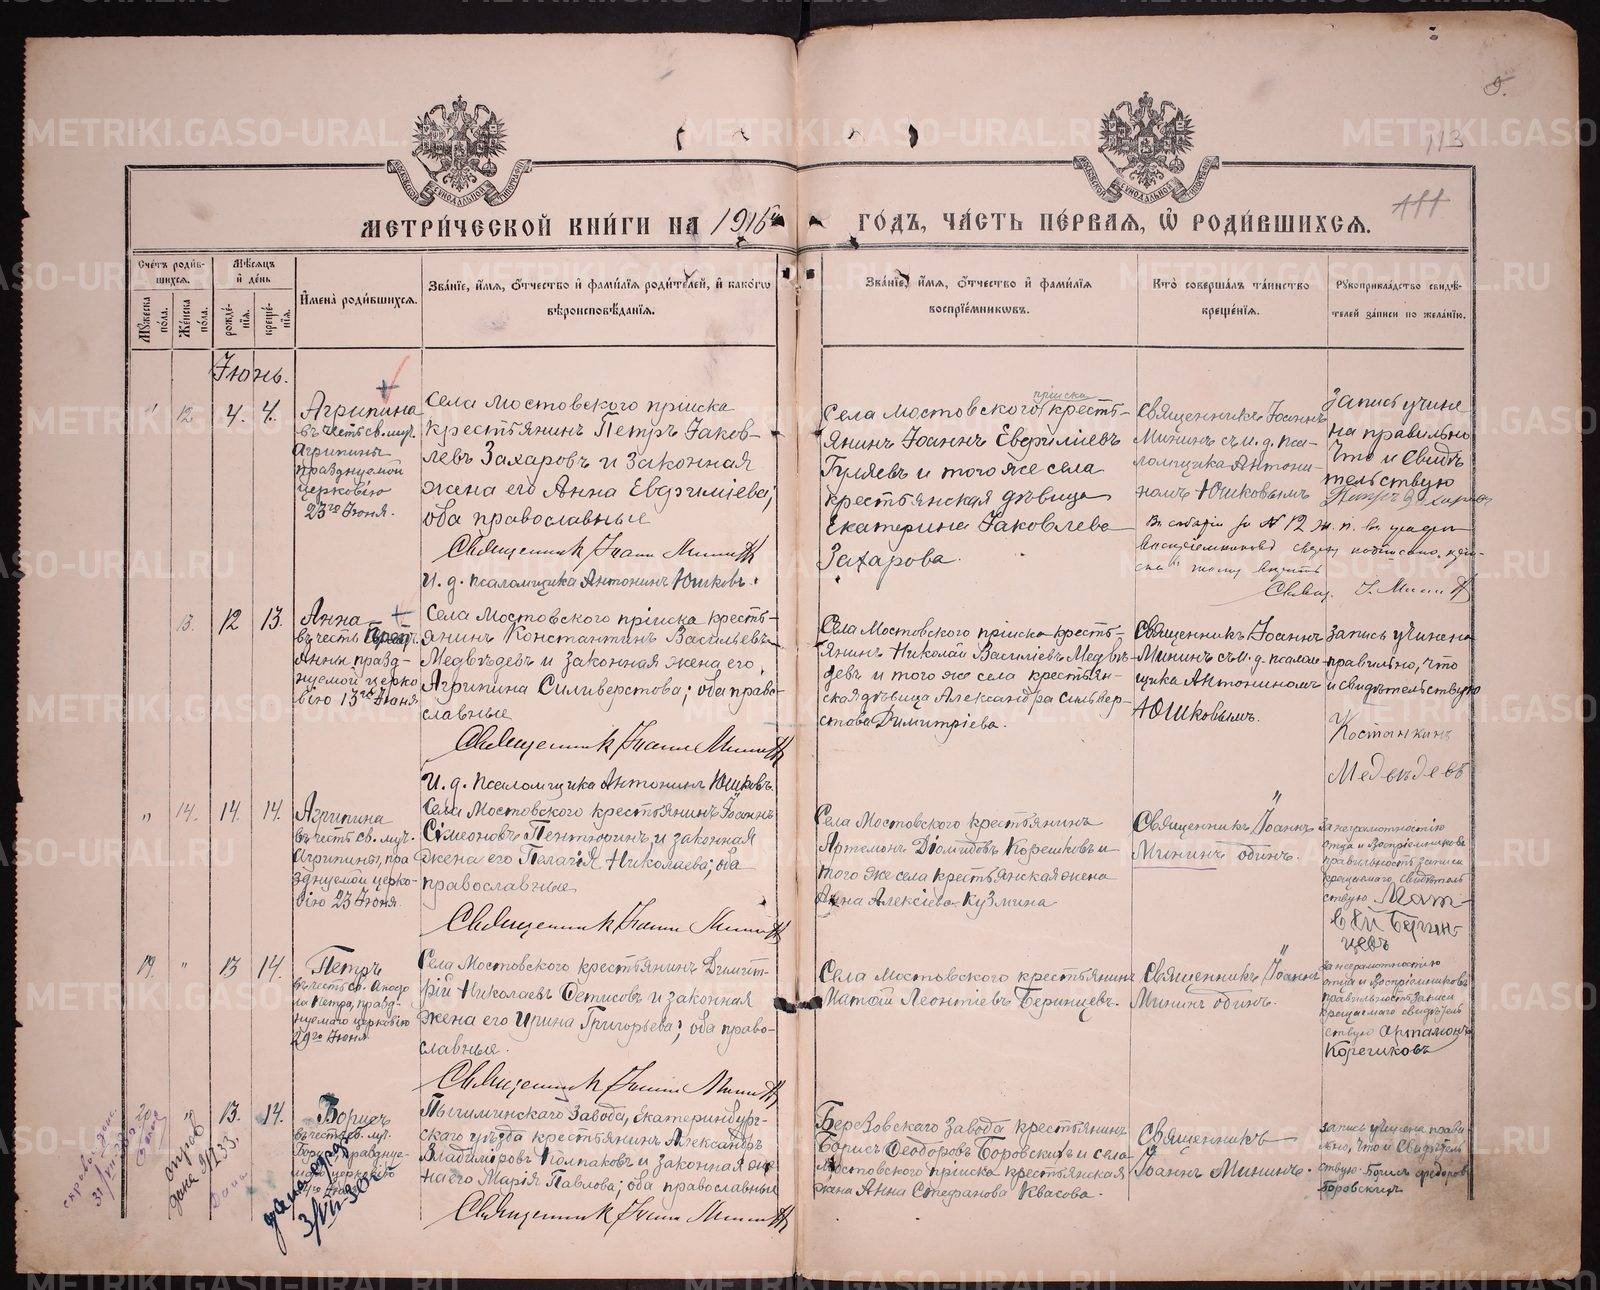 5.
113
111
МЕТРИ́ЧЕСКОЙ КНИ́ГИ НА 1916й ГО́ДЪ, ЧА́СТЬ ПЕ́РВАЯ, Ѡ҆ РОДИ́ВШИХСЯ.
Сче́тъ роди́в-
шихся.
Му́жеска
по́ла.
Же́нска
по́ла.
Мѣ́сяцъ
и҆ де́нь
рожде́-
нія.
креще́-
нія.
И҆мена̀ роди́вшихся.
Зва́нїе, и҆́мя, ѻ҆́тчество и҆ фами́лїя роди́телей, и҆ како́гѡ
вѣроисповѣ́данїя.
Зва́нїе, и҆́мя, ѻ҆́тчество и҆ фами́лїя
воспрїе́мниковъ.
Кто̀ соверша́лъ та́инство
креще́нїя.
Рꙋкоприкла́дство свидѣ́-
телей за́писи по жела́нїю.
Іюнь.
"
12
4.
4.
Агрипина
въ честь св. муч.
Агрипины
празднуемой
церковію
23го Іюня.
Села Мостовского пріиска
крестьянинъ Петръ Іаков-
левъ Захаровъ и законная
жена его Анна Евфиміева;
оба православные
Священник Іоанн Минин
И. д. псаломщика Антонинъ Юшковъ.
пріиска
Села Мостовского крестъ-
янинъ Іоаннъ
Гуляевъ и того же села
крестьянская дѣвица
Екатерина Іаковлева
Захарова.
Священникъ Іоаннъ
Мининъ съ и. д. пса-
ломщика Антони-
номъ Юшковымъ
Запись учине
на правильно
что и свидѣ
тельствую
Петръ Захаровъ
13.
12
13.
Анна
въ честь Преп.
Анны празд-
нуемой церко
вію 13го Іюня
Села Мостовского пріиска кресть-
янинъ Константинъ Васильевъ
Медвѣдевъ и законная жена его
Агрипина Силиверстова; оба право-
славные
Священник Іоанн Минин
И. д. псаломщика Антонинъ Юшковъ.
Села Мостовского пріиска кресть-
янинъ Николай Василіевъ Медвѣ-
девъ и того же села крестьян-
ская дѣвица Александра Сильвер-
стова Димитріева.
Священникъ Іоаннъ
Мининъ съ и. д. псалом-
щика Антониномъ
Юшковымъ.
Запись учинена
правильно, что
и свидѣтельствую
Костанкинъ
Медвѣдевъ
"
14.
14.
14.
Агрипина
въ честь св. муч.
Агрипины, пра
зднуемой церко-
вію 23 Іюня
Села Мостовского крестьянинъ Іоаннъ
Сімеоновъ Пентюринъ и законная
жена его Пелагія Николаева; оба
православные
Священник Іоанн Минин
Села Мостовского крестьянинъ
Артемонъ Діомидовъ Корешковъ и
того же села крестьянская жена
Анна Алексіева Кузмина
Священникъ Іоаннъ
Мининъ одинъ.
За неграмотностію
отца и воспріемниковъ
правильность записи
крещаемаго свидѣтель
ствую Мат-
вѣй Беринь-
цевъ
19.
"
13
14.
Петръ
въ честь св. Апосто
ла Петра, празд-
нуемаго церковію
29го Іюня
Села Мостовского крестьянинъ Димит-
рій Николаевъ Фетисовъ и законная
жена его Ирина Григорьева; оба право-
славные.
Священник Іоанн Минин
Села Мостовского крестьянин
Матѳій Леонтіевъ Беринцевъ.
Священникъ Іоаннъ
Мининъ одинъ.
За неграмотностію
отца и воспріемниковъ
правильность записи
крещаемаго свидѣтель
ствую Артамонъ
Корешковъ
20.
13.
14.
Борисъ
въ честь св. муч.
Пышминскаго Завода, Екатеринбург-
скаго уѣзда крестьянинъ Александръ
Владиміровъ Колпаковъ и законная же
на его Марія Павлова; оба православные
Священник Іоанн Минин
Березовского завода крестьянинъ
Борисъ Ѳеодоровъ Боровскихъ и села
Мостовского пріиска крестьянская
жена Анна Стефанова Квасова.
Священникъ
Іоаннъ Мининъ.
Запись учинена прави-
льно, что и свидѣтель
ствую Борисъ Федоровъ
Боровскихъ
METRIKI.GASO-URAL.RU